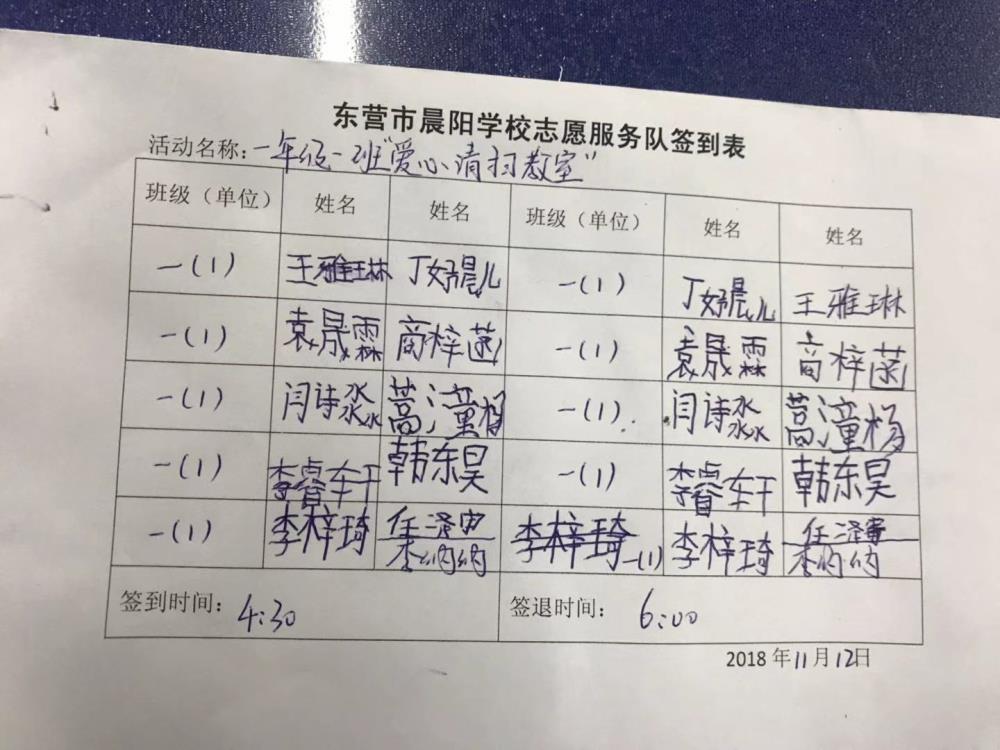 东营市晨阳学校志愿服务队签到表
活动名称:一年级一班"爱心清扫教室"
班级（单位） 姓名 姓名 班级（单位） 姓名 姓名
一(1) 王雅琳 丁妤晨儿 一(1) 丁妤晨儿 王雅琳
一(1) 袁晟霖 商梓菡 一(1) 袁晟霖 商梓菡
一(1) 闫诗淼 蒿潼杨 一(1) 闫诗淼 蒿潼杨
一(1) 李睿轩 韩东昊 一(1) 李睿轩 韩东昊
一(1) 李梓琦 任泽 李梓琦 一(1) 李梓琦 任泽
签到时间: 4:30 签退时间: 6:00
2018年11月12日